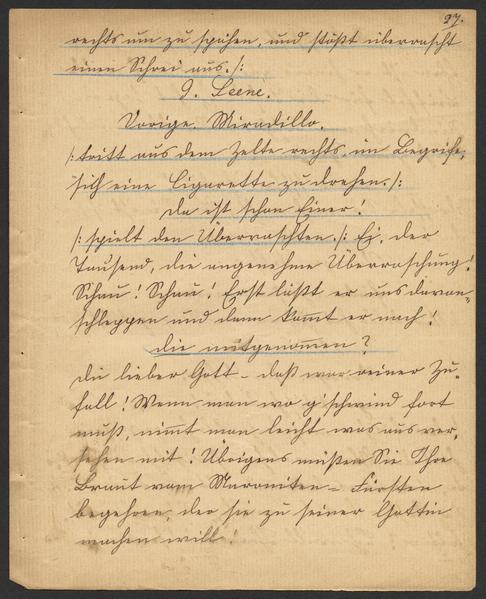 97.
rechts um zu spähen, und stößt überrascht
einen Schrei aus./:
9. Scene.
Vorige. Miradillo.
/:tritt aus dem Zelte rechts, im Begriffe,
sich eine Cigarette zu drehen./:
Da ist schon Einer!
/:spielt den Überraschten./: Ei, der
Tausend, die angenehme Überraschung!
Schau! Schau! Erst läßt er uns davon-
schleppen und dann kom̄t er nach!
die mitgenom̄en?
Du lieber Gott – das war reiner Zu-
fall! Wenn man wo g'schwind fort
muß, nim̄t man leicht was aus ver-
sehen mit! Übrigens müßen Sie Ihre
Braut vom Maroniten-Fürsten
begehren, der sie zu seiner Gattin
machen will!